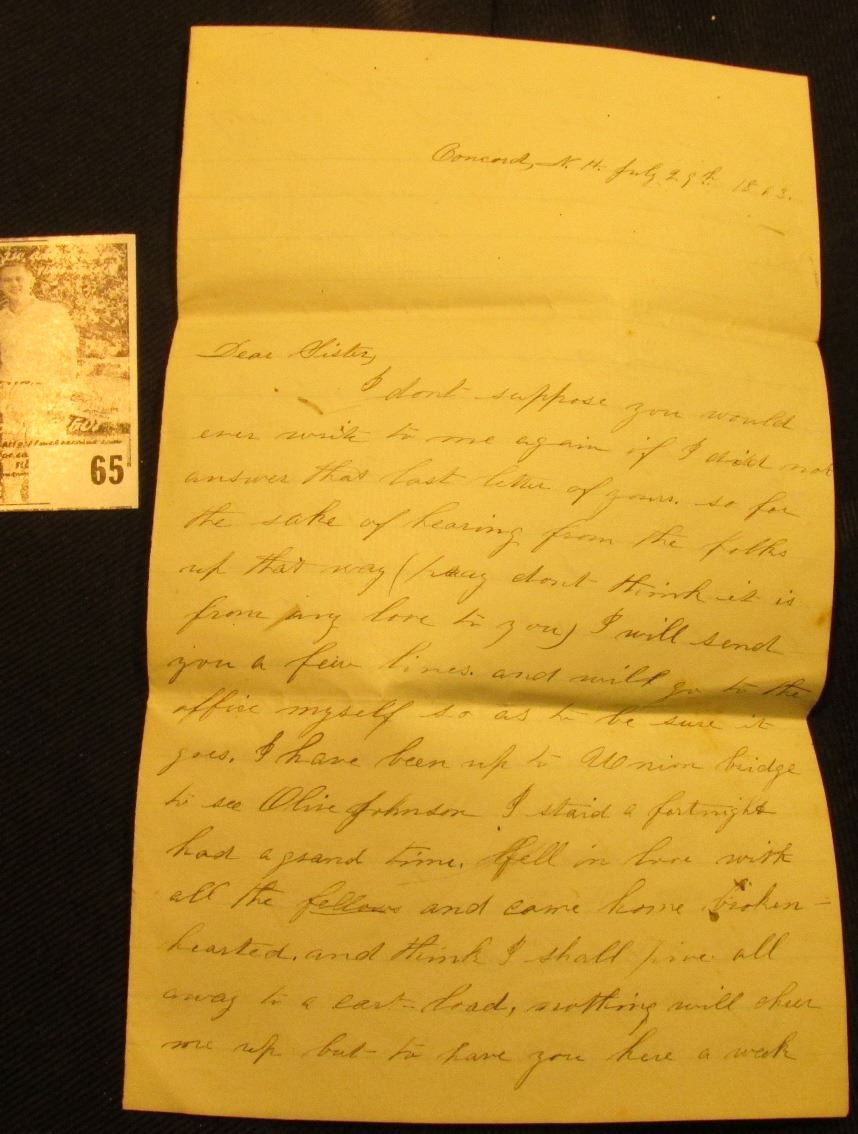 Concord, N. H. July 29th 1863.
Dear Sister,
I dont suppose you would
ever write to me again if I did not
answer that last letter of yours. so for
the sake of hearing from the folks
up that way (pray dont think it is
from any love to you) I will send
you a few lines. and will go to the
office myself so as to be sure it
goes. I have been up to Union bridge
to see Olive Johnson I staid a fortnight
had a grand time. fell in love with
all the fellows and came home broken-
hearted. and think I shall pine all
away to a cart-load, nothing will cheer
me up but to have you here a week
65